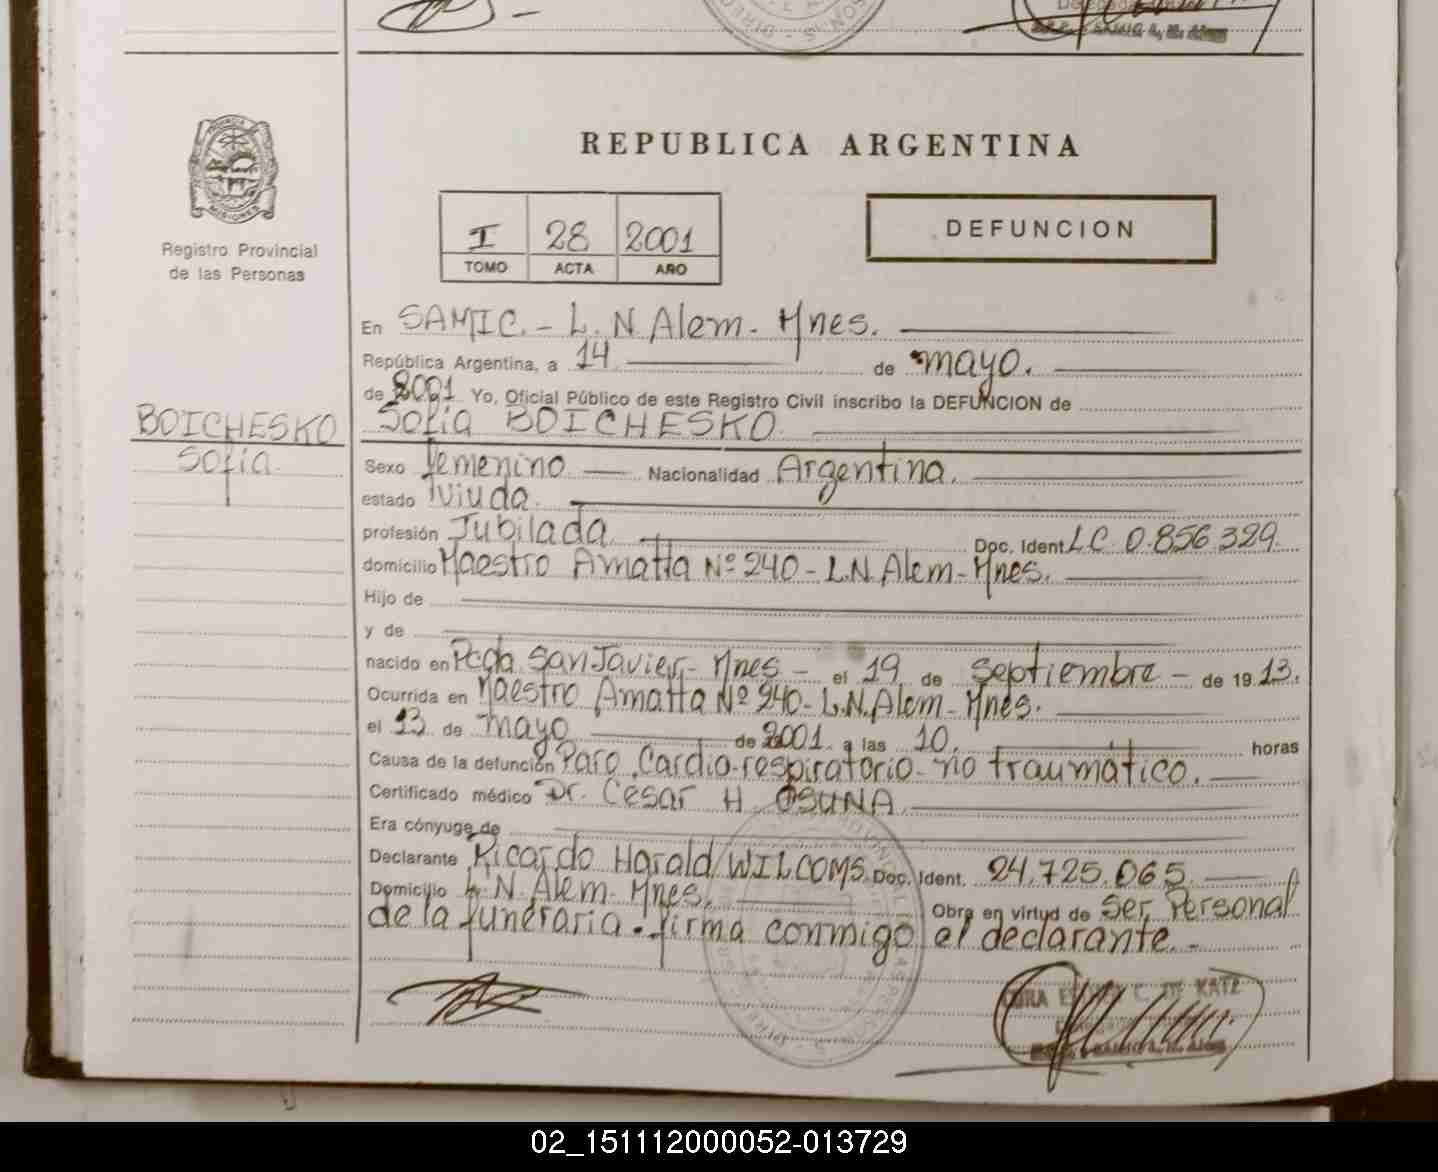 PROVINCIA DE
MISIONES
Registro Provincial
de las Personas
REPUBLICA ARGENTINA
I 28 2001
TOMO ACTA AÑO
DEFUNCION
En SAMIC.- L. N. Alem- Mnes.
República Argentina, a 14 de mayo.
de 2001 Yo, Oficial Público de este Registro Civil inscribo la DEFUNCION de
Sofia BOICHESKO
BOICHESKO
Sofia.
Sexo femenino Nacionalidad Argentina.
estado Viuda.
profesión Jubilada Doc. Ident. LC 0.856.329.
domicilio Maestro Amatta Nº 240 - L.N. Alem- Mnes.
Hijo de
y de
nacido en Pcda San Javier- Mnes - el 19 de septiembre - de 19 13.
Ocurrida en Maestro Amatta Nº 240- L.N. Alem- Mnes.
el 13 de mayo de 2001. a las 10. horas
Causa de la defunción Paro Cardio-respiratorio- no traumático.
Certificado médico Dr. Cesar H OSUNA
Era cónyuge de
Declarante Ricardo Harald WILCOMS Doc. Ident. 24.725.065.
Domicilio L.N. Alem- Mnes. Obra en virtud de Ser Personal
de la funeraria. firma conmigo el declarante.-
C. DE KATZ
02_151112000052-013729